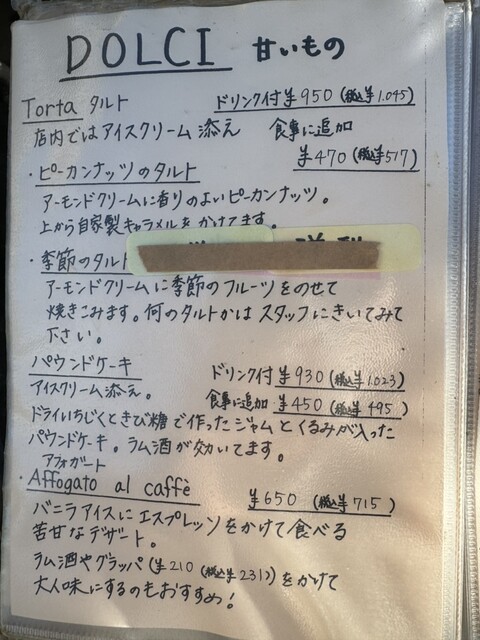 DOLCI 甘いもの
Torta タルト ドリンク付 ¥950 (税込¥1.045)
店内ではアイスクリーム添え 食事に追加
¥470 (税込¥517)
・ピーカンナッツのタルト
アーモンドクリームに香りのよいピーカンナッツ。
上から自家製キャラメルをかけてます。
・季節のタルト
アーモンドクリームに季節のフルーツをのせて
焼きこみます。何のタルトかはスタッフにきいてみて
下さい。
パウンドケーキ ドリンク付 ¥930 (税込¥1.023)
アイスクリーム添え。 食事に追加 ¥450 (税込¥495)
ドライいちじくときび糖で作ったジャムとくるみが入った
パウンドケーキ。ラム酒が効いてます。
アフォガート
・Affogato al caffè ¥650 (税込¥715)
バニラアイスにエスプレッソをかけて食べる
苦甘なデザート。
ラム酒やグラッパ(¥210 (税込¥231))をかけて
大人味にするのもおすすめ!